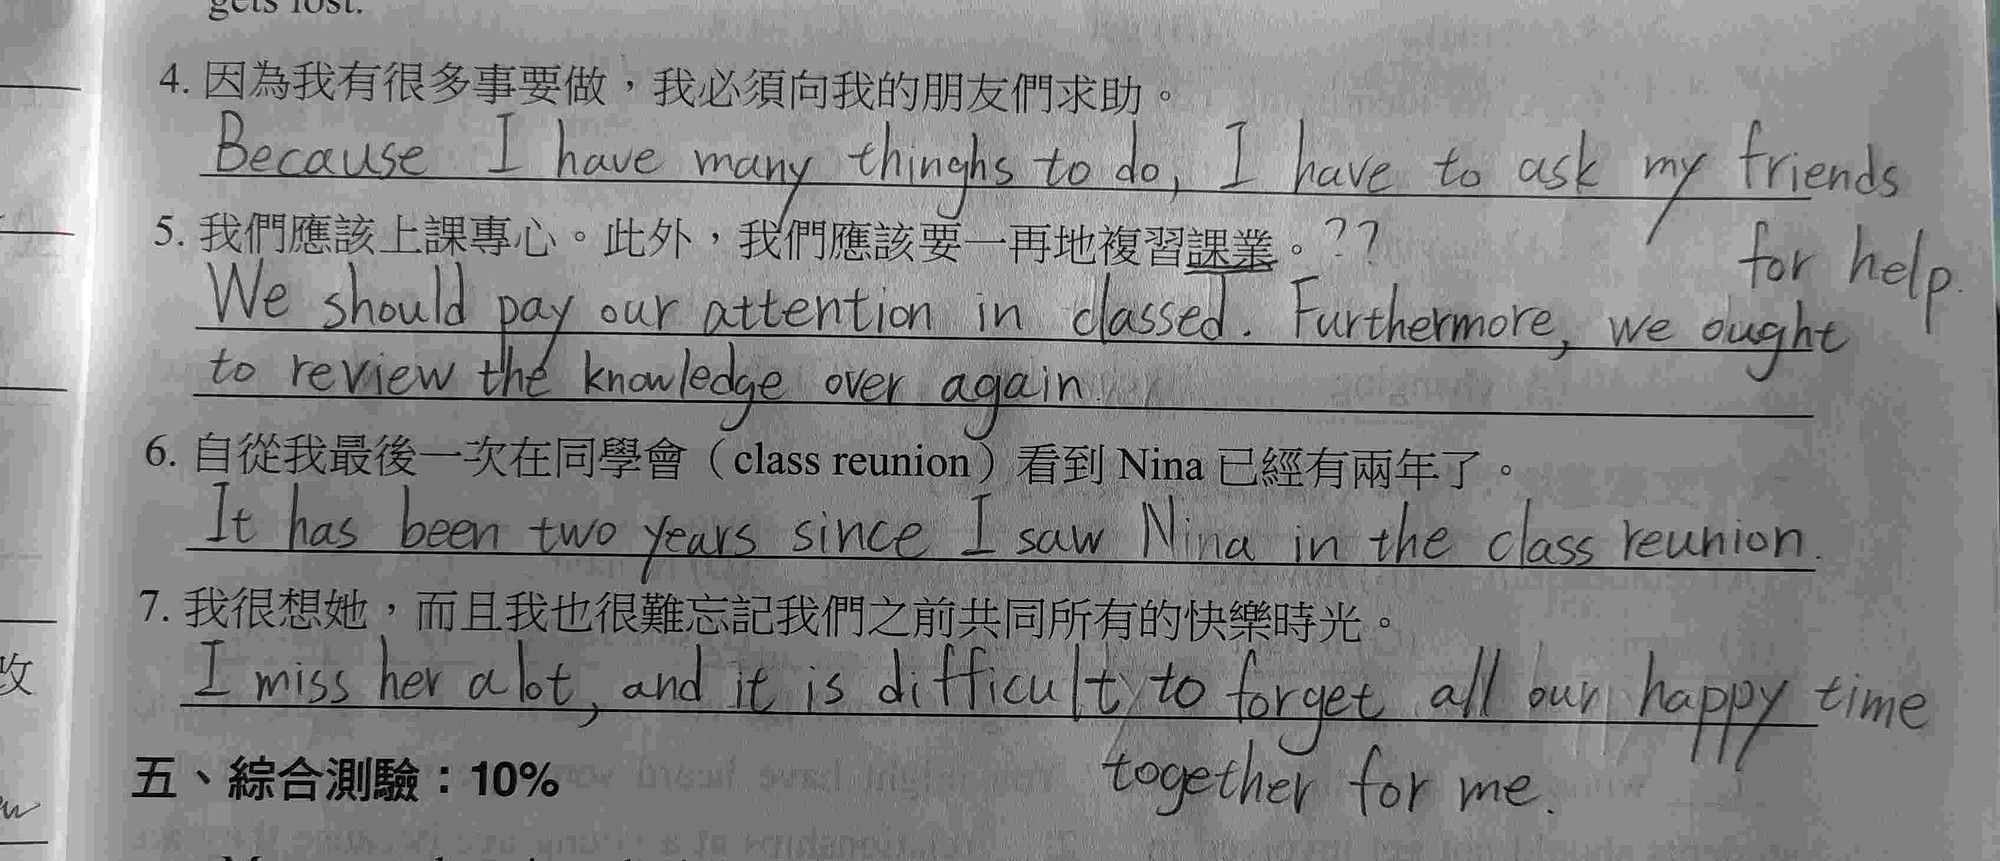 gets lost.
4. 因為我有很多事要做，我必須向我的朋友們求助。
Because I have many thinghs to do, I have to ask my friends
for help.
5. 我們應該上課專心。此外，我們應該要一再地複習課業。??
We should pay our attention in classed. Furthermore, we ought
to review the knowledge over again.
6. 自從我最後一次在同學會（class reunion）看到 Nina 已經有兩年了。
It has been two years since I saw Nina in the class reunion.
7. 我很想她，而且我也很難忘記我們之前共同所有的快樂時光。
I miss her a lot, and it is difficult to forget all our happy time
together for me.
五、綜合測驗：10%